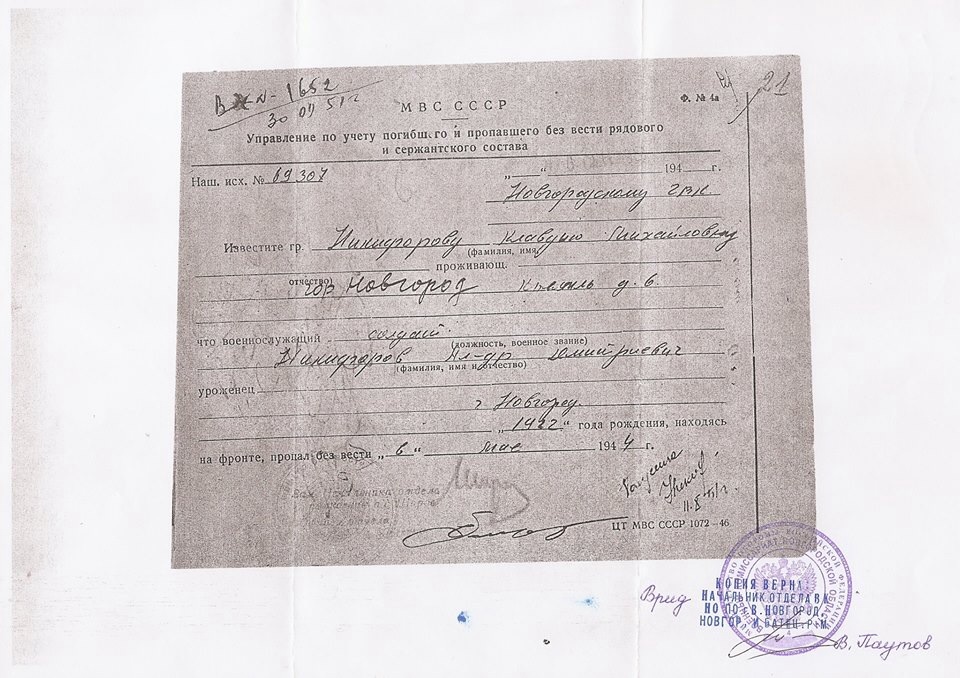 ВХ N - 1652
30 07 51 г
21
МВС СССР
Ф. № 4а
Управление по учету погибшего и пропавшего без вести рядового
и сержантского состава
Наш. исх. № 69307
„ “ 194 г.
Новгородскому ГВК
Известите гр. Никифорову Клавдию Михайловну
(фамилия, имя
проживающ.
отчество)
гор Новгород Кремль д. 6.
что военнослужащий солдат.
(должность, военное звание)
Никифоров Ал-др Дмитриевич
(фамилия, имя и отчество)
уроженец
г Новгород.
„1922“ года рождения, находясь
на фронте, пропал без вести „в“ мае 1944 г.
Зам. Начальника отдела
Получила
ЦТ МВС СССР 1072—46
КОПИЯ ВЕРНА:
Врид НАЧАЛЬНИК ОТДЕЛА ВК
НО ПО В.НОВГОРОД,
НОВГОР. И БАТЕЦ. Р-М
В. Паутов